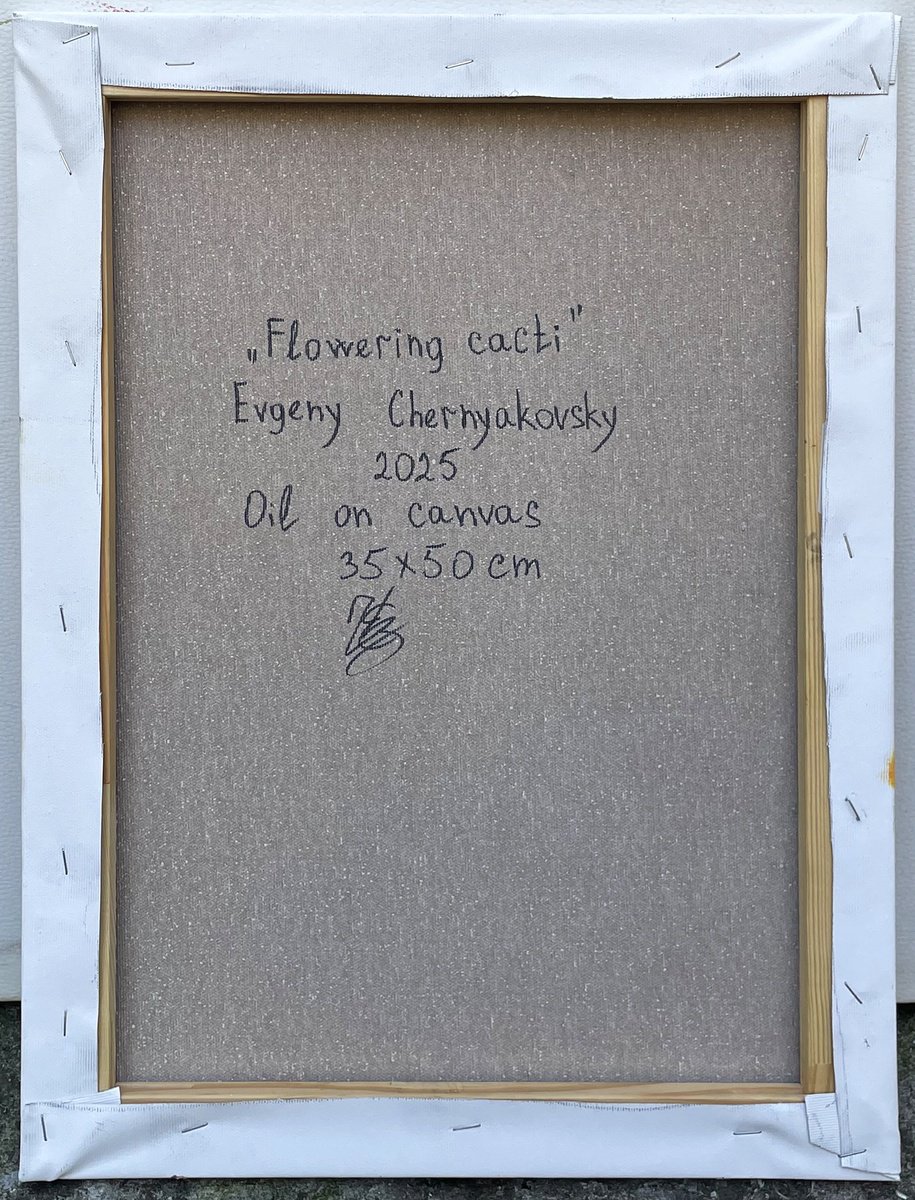 „Flowering cacti"
Evgeny Chernyakovsky
2025
Oil on canvas
35x50 cm